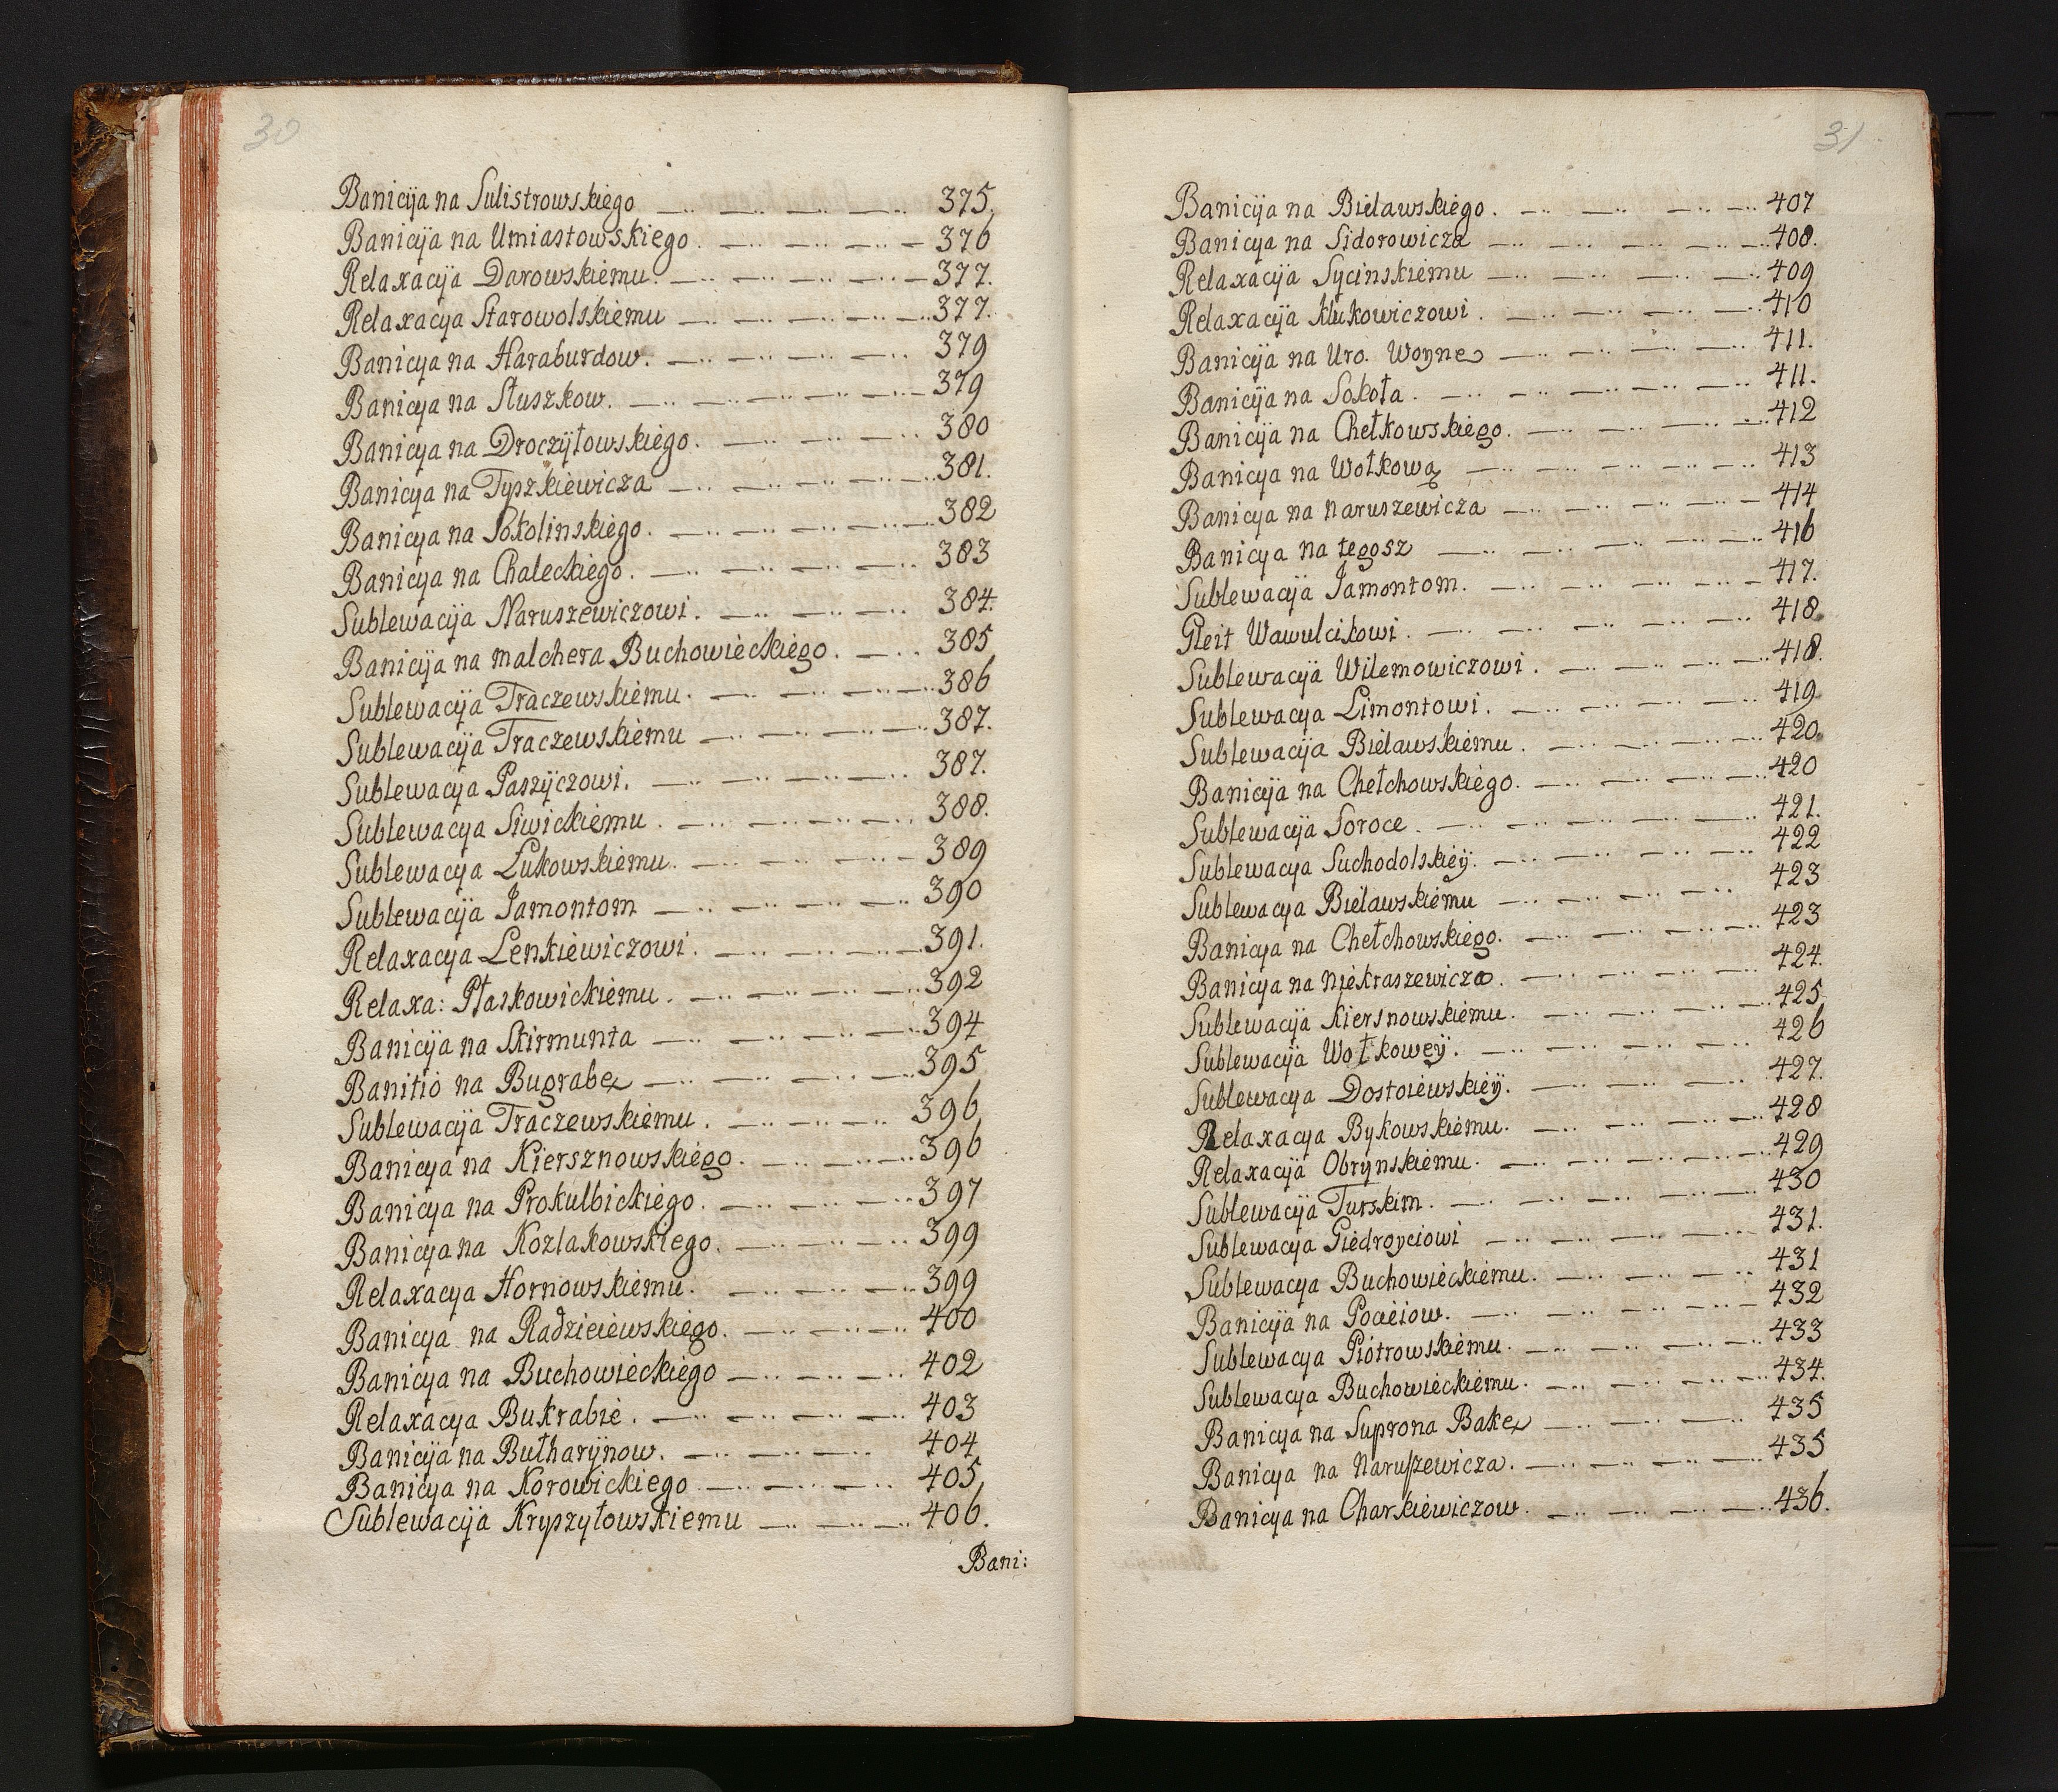 30
Banicija na Sulistrowskiego 375.
Banicija na Umiastowskiego. 376
Relaxacija Darowskiemu. 377.
Relaxacya Starowolskiemu 377.
Banicya na Haraburdow. 379
Banicya na Słuszkow. 379
Banicya na Droczyłowskiego. 380
Banicya na Tyszkiewicza 381.
Banicya na Sokolinskiego. 382
Banicya na Chaleckiego. 383
Sublewacija Naruszewiczowi. 384.
Banicija na malchera Buchowieckiego. 385
Sublewacija Traczewskiemu. 386
Sublewacija Traczewskiemu 387.
Sublewacya Paszyczowi. 387.
Sublewacya Siwickiemu. 388.
Sublewacya Łukowskiemu. 389
Sublewacija Jamontom 390
Relaxacya Lenkiewiczowi. 391.
Relaxa: Płaskowickiemu. 392
Banicija na Skirmunta 394
Banitio na Bugrabę 395
Sublewacija Traczewskiemu. 396
Banicya na Kiersznowskiego. 396
Banicya na Prokulbickiego. 397
Banicya na Kozlakowskiego. 399
Relaxacya Hornowskiemu. 399
Banicya na Radzieiewskiego. 400
Banicya na Buchowieckiego 402
Relaxacya Bukrabie. 403
Banicija na Bułharynow. 404
Banicya na Korowickiego 405
Sublewacija Kryszyłowskiemu 406.
Bani:
31
Banicija na Bielawskiego. 407
Banicya na Sidorowicza 408.
Relaxacija Sycinskiemu 409
Relaxacija Klukowiczowi. 410
Banicija na Uro. Woyne 411.
Banicija na Sokoła. 411.
Banicija na Chełkowskiego. 412
Banicya na Wołkową 413
Banicya na naruszewicza 414
Banicya na tegosz 416
Sublewacija Jamontom. 417.
Gleit Wawulcikowi. 418
Sublewacija Wilemowiczowi. 418.
Sublewacya Limontowi. 419
Sublewacija Bielawskiemu. 420
Banicija na Chełchowskiego. 420
Sublewacija Soroce. 421.
Sublewacya Suchodolskiey. 422
Sublewacya Bielawskiemu 423
Banicya na Chełchowskiego. 423
Banicya na niekraszewicza. 424.
Sublewacija Kiersnowskiemu. 425
Sublewacija Wołkowey. 426
Sublewacya Dostoiewskiey. 427.
Relaxacya Bykowskiemu. 428
Relaxacija Obrynskiemu. 429
Sublewacija Turskim. 430
Sublewacya Giedroyciowi 431.
Sublewacya Buchowieckiemu. 431
Banicija na Pocieiow. 432
Sublewacya Piotrowskiemu. 433
Sublewacya Buchowieckiemu. 434.
Banicya na Suprona Bakę 435
Banicya na Naruszewicza. 435
Banicya na Charkiewiczow. 436.